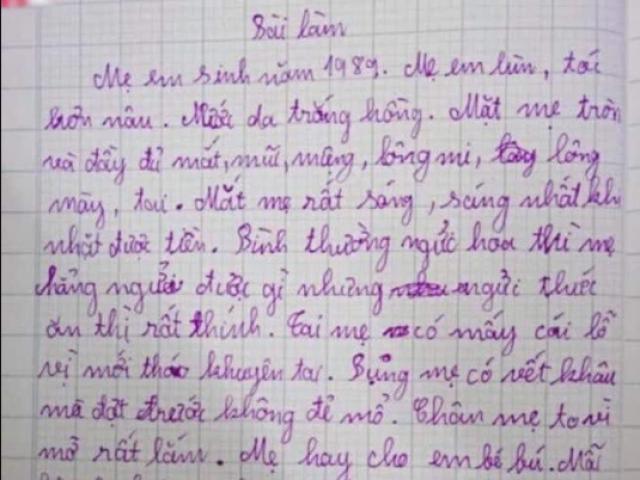 Bài làm
Mẹ em sinh năm 1989. Mẹ em lùn, tóc
nâu. da trắng hồng. Mặt mẹ tròn
và đầy đủ mắt, mũi, mệng, lông mi, lông
mày, tai. Mắt mẹ rất sáng, sáng nhất khi
nhặt được tiền. Bình thường ngửi hoa thì mẹ
chẳng ngửi được gì nhưng ngửi thức
ăn thì rất thính. Tai mẹ có mấy cái lỗ
vì mới tháo khuyên tai. Bụng mẹ có vết khâu
mà đợt trước không đẻ mổ. Chân mẹ to vì
mỡ rất lắm. Mẹ hay cho em bé bú. Mỗi